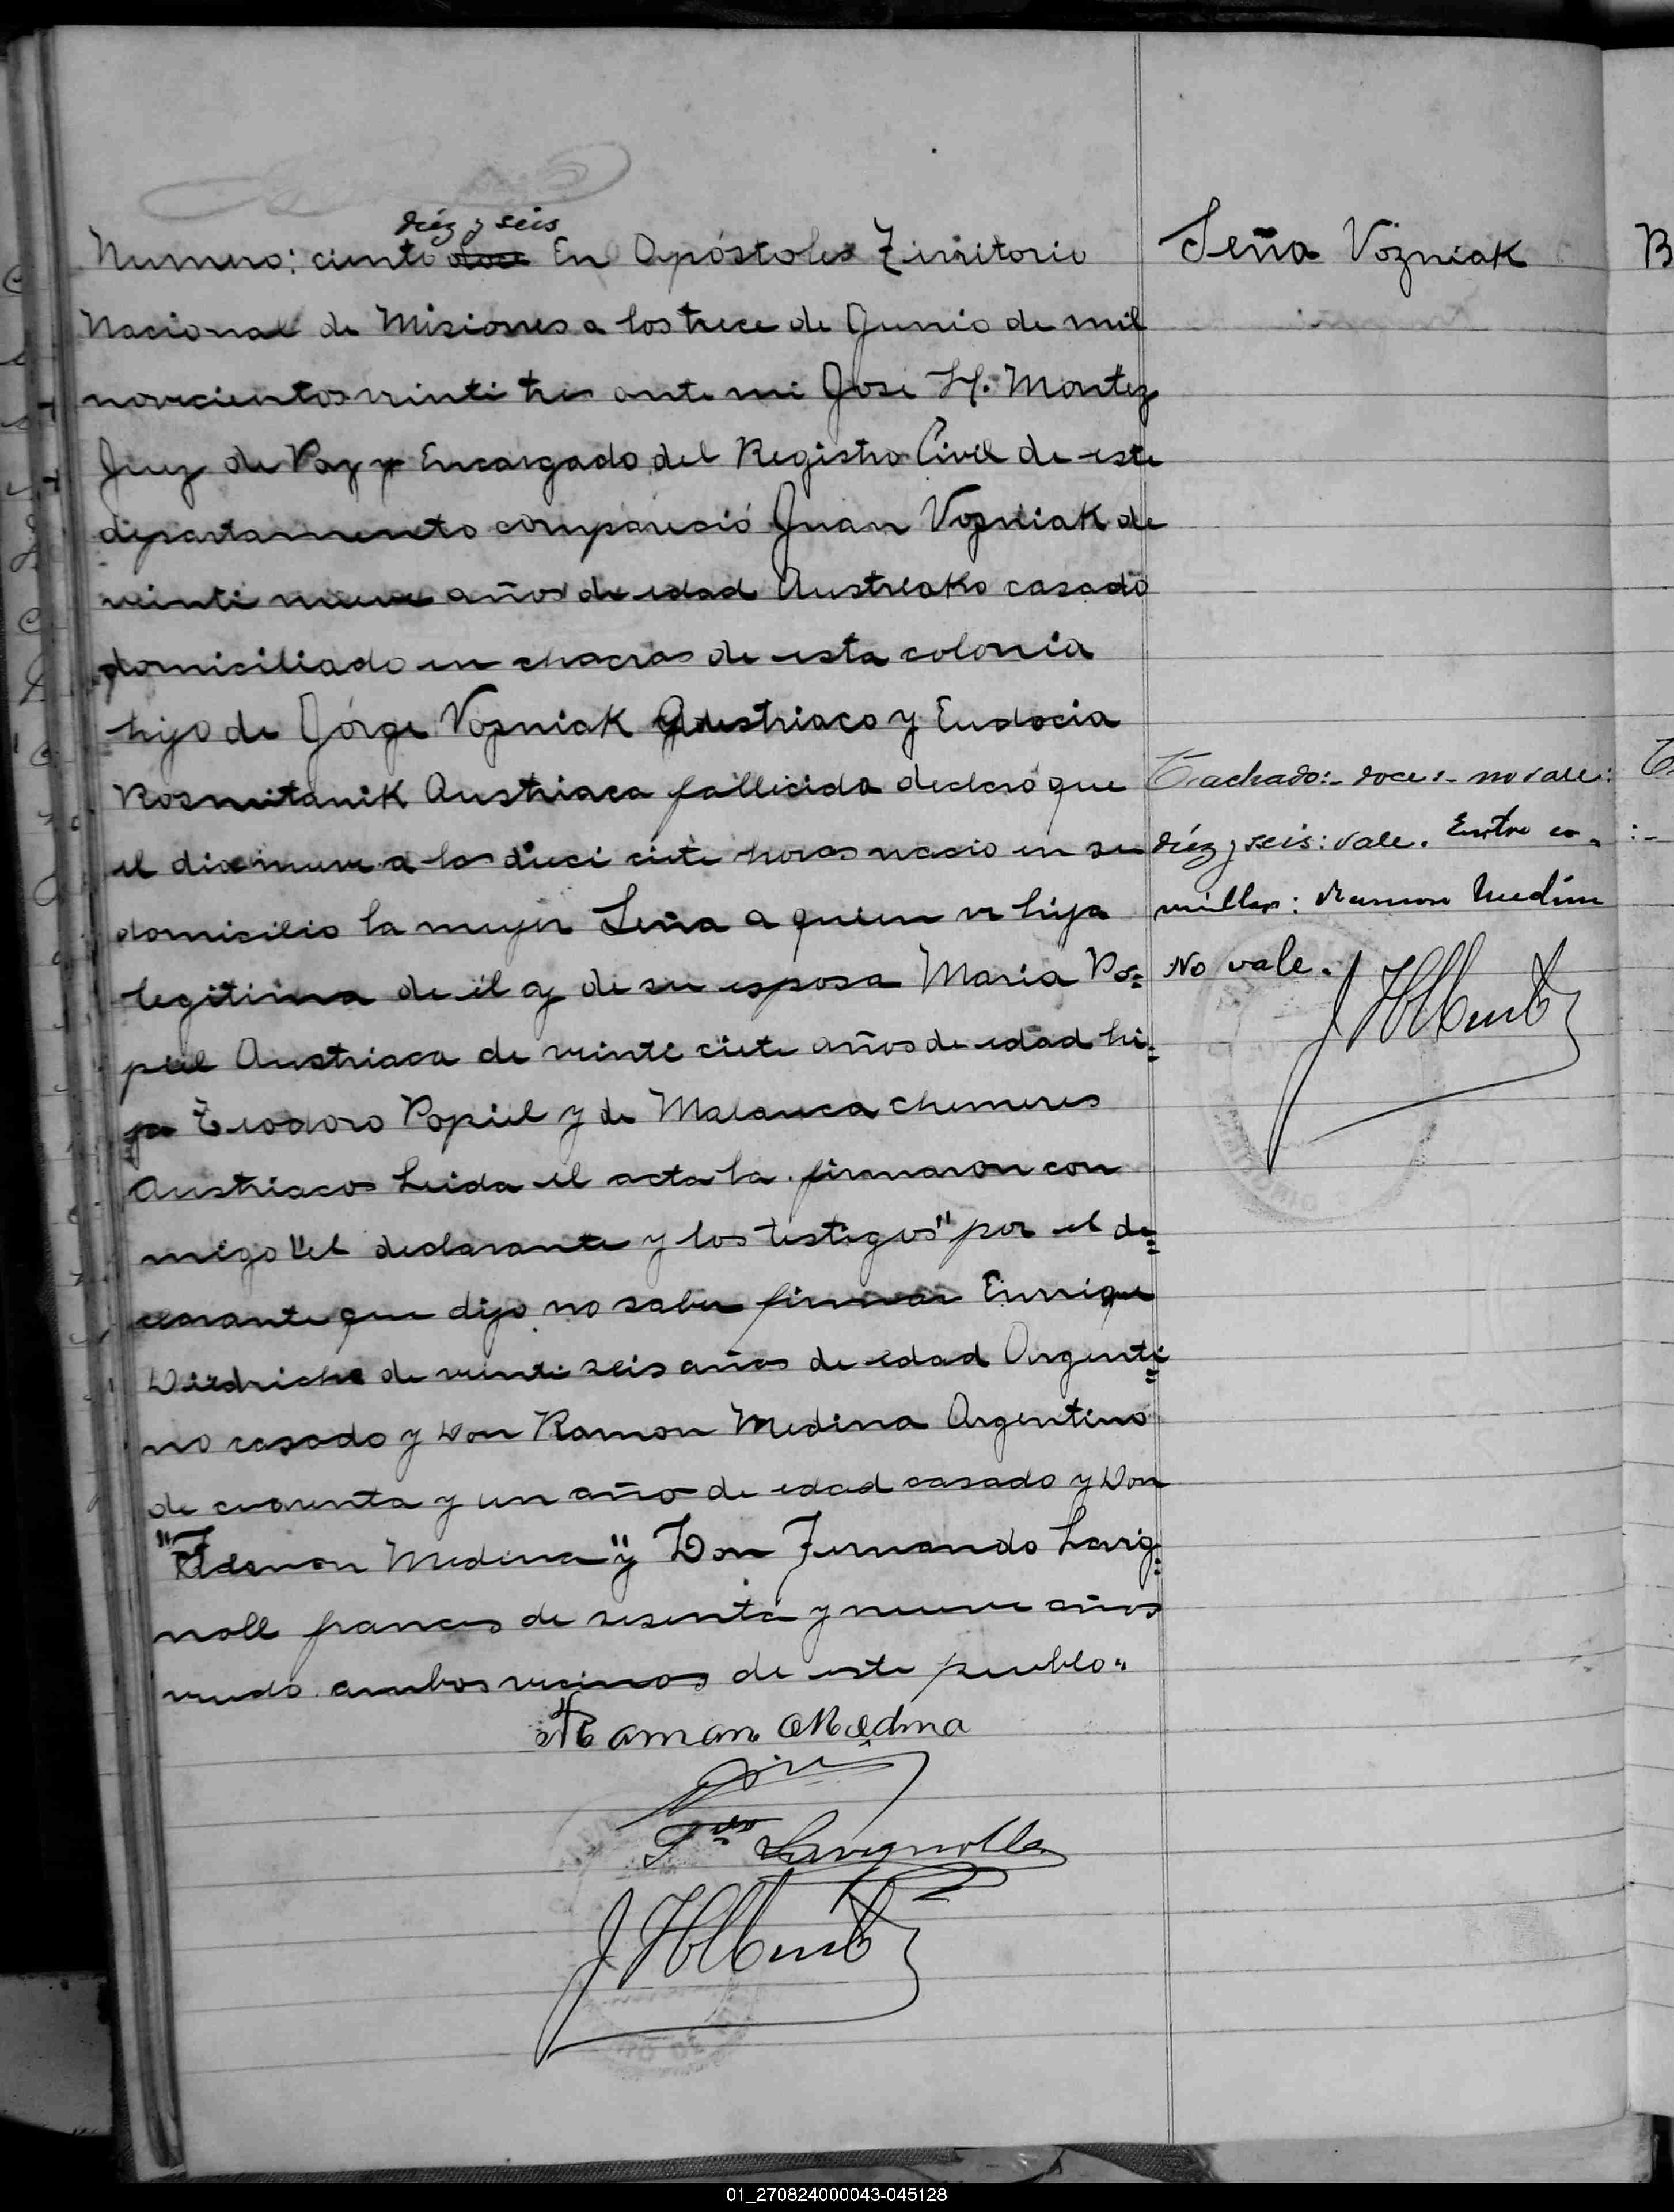 diéz y seis
Numero: ciento doce En Apóstoles Territorio
Nacional de Misiones a los trece de Junio de mil
novecientos veinti tres ante mi Jose H. Montez
Juez de Paz y Encargado del Registro Civil de este
departamento comparesió Juan Vozniak de
veinti nueve años de edad Austreako casado
domiciliado en chacras de esta colonia
hijo de Jórge Vozniak Austriaco y Eudocia
Rosmitanik Austriaca fallicida declaró que
el dia nueve a las dieci ciete horas nacio en su
domicilio la mujer Seña a quien ve hija
legitima de él y de su esposa Maria Po=
piel Austriaca de veinte ciete años de edad hi=
ja Teodoro Popiel y de Malanca Chemeres
Austriacos Leida el acta la firmaron con
migo "el declarante y los testigos" por el de=
clarante que dijo no saber firmar Enrrique
Diedriche de veinti seis años de edad Argenti=
no casado y Don Ramon Medina Argentino
de cuarenta y un año de edad casado y Don
"Ramon Medina" y Don Fernando Lavig=
noll frances de sesenta y nueve años
viudo ambos vecinos de este pueblo.
Raman Medina
Lavignolle
J H Montez
Seña Vozniak
Tachado:- doce:- no vale:
diéz y seis: vale. Entre co-
millas: Ramon Medina
No vale.
J H Montez
B
01_270824000043-045128